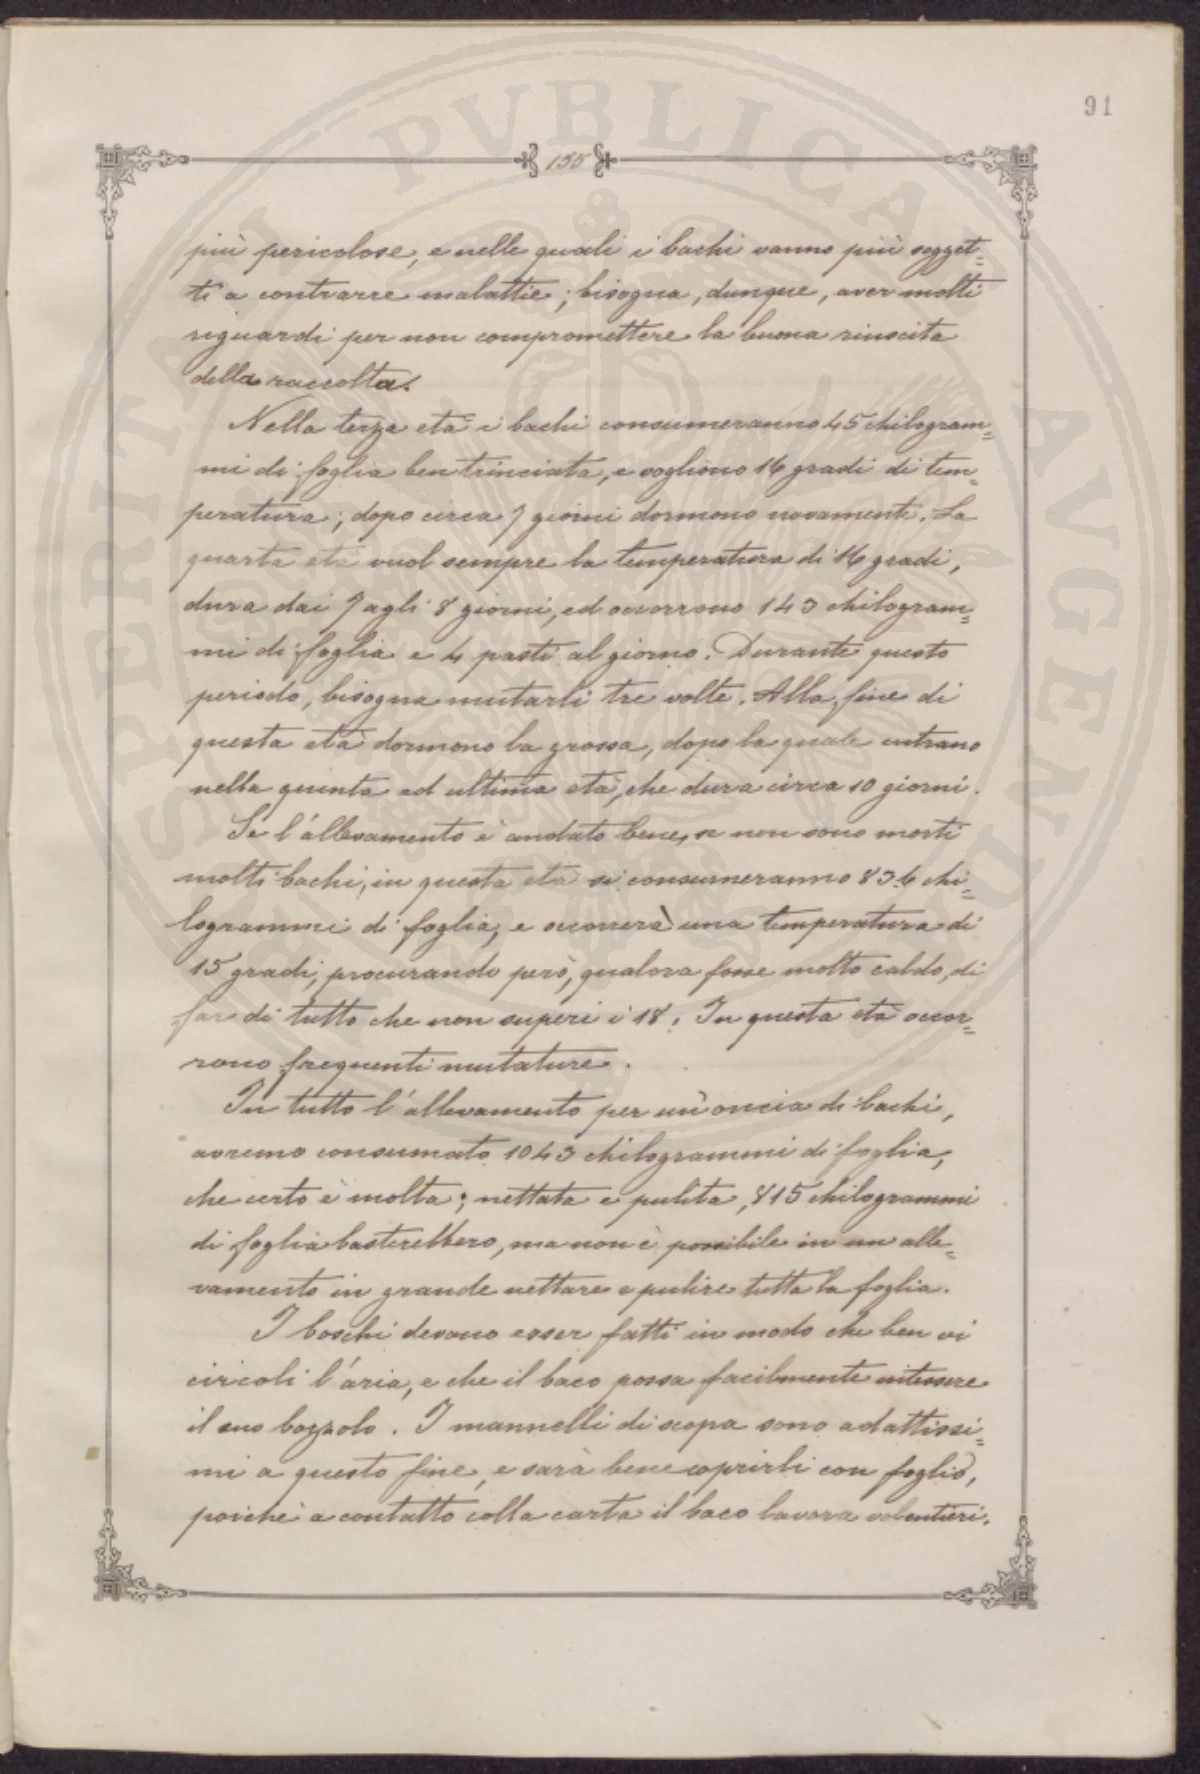 91
155
più pericolose, e nelle quali i bachi vanno più sogget=
ti a contrarre malattie; bisogna, dunque, aver molti
riguardi per non compromettere la buona riuscita
della raccolta.
Nella terza età i bachi consumeranno 45 chilogram=
mi di foglia ben trinciata, e vogliono 16 gradi di tem=
peratura; dopo circa 7 giorni dormono novamente. La
quarta età vuol sempre la temperatura di 16 gradi,
dura dai 7 agli 8 giorni, ed occorrono 143 chilogram=
mi di foglia e 4 pasti al giorno. Durante questo
periodo, bisogna mutarli tre volte. Alla fine di
questa età dormono la grossa, dopo la quale entrano
nella quinta ed ultima età, che dura circa 10 giorni.
Se l'allevamento è andato bene, se non sono morti
molti bachi, in questa età si consumeranno 836 chi=
logrammi di foglia, e occorrerà una temperatura di
15 gradi, procurando però, qualora fosse molto caldo, di
far di tutto che non superi i 18. In questa età occor=
rono frequenti mutature.
In tutto l'allevamento per un'oncia di bachi,
avremo consumato 1043 chilogrammi di foglia,
che certo è molta; nettata e pulita, 815 chilogrammi
di foglia basterebbero, ma non è possibile in un alle=
vamento in grande nettare e pulire tutta la foglia.
I boschi devono esser fatti in modo che ben vi
circoli l'aria, e che il baco possa facilmente intessere
il suo bozzolo. I mannelli di scopa sono adattissi=
mi a questo fine, e sarà bene coprirli con foglio,
poichè a contatto colla carta il baco lavora volentieri.
PVBLICAE
AVGENDO